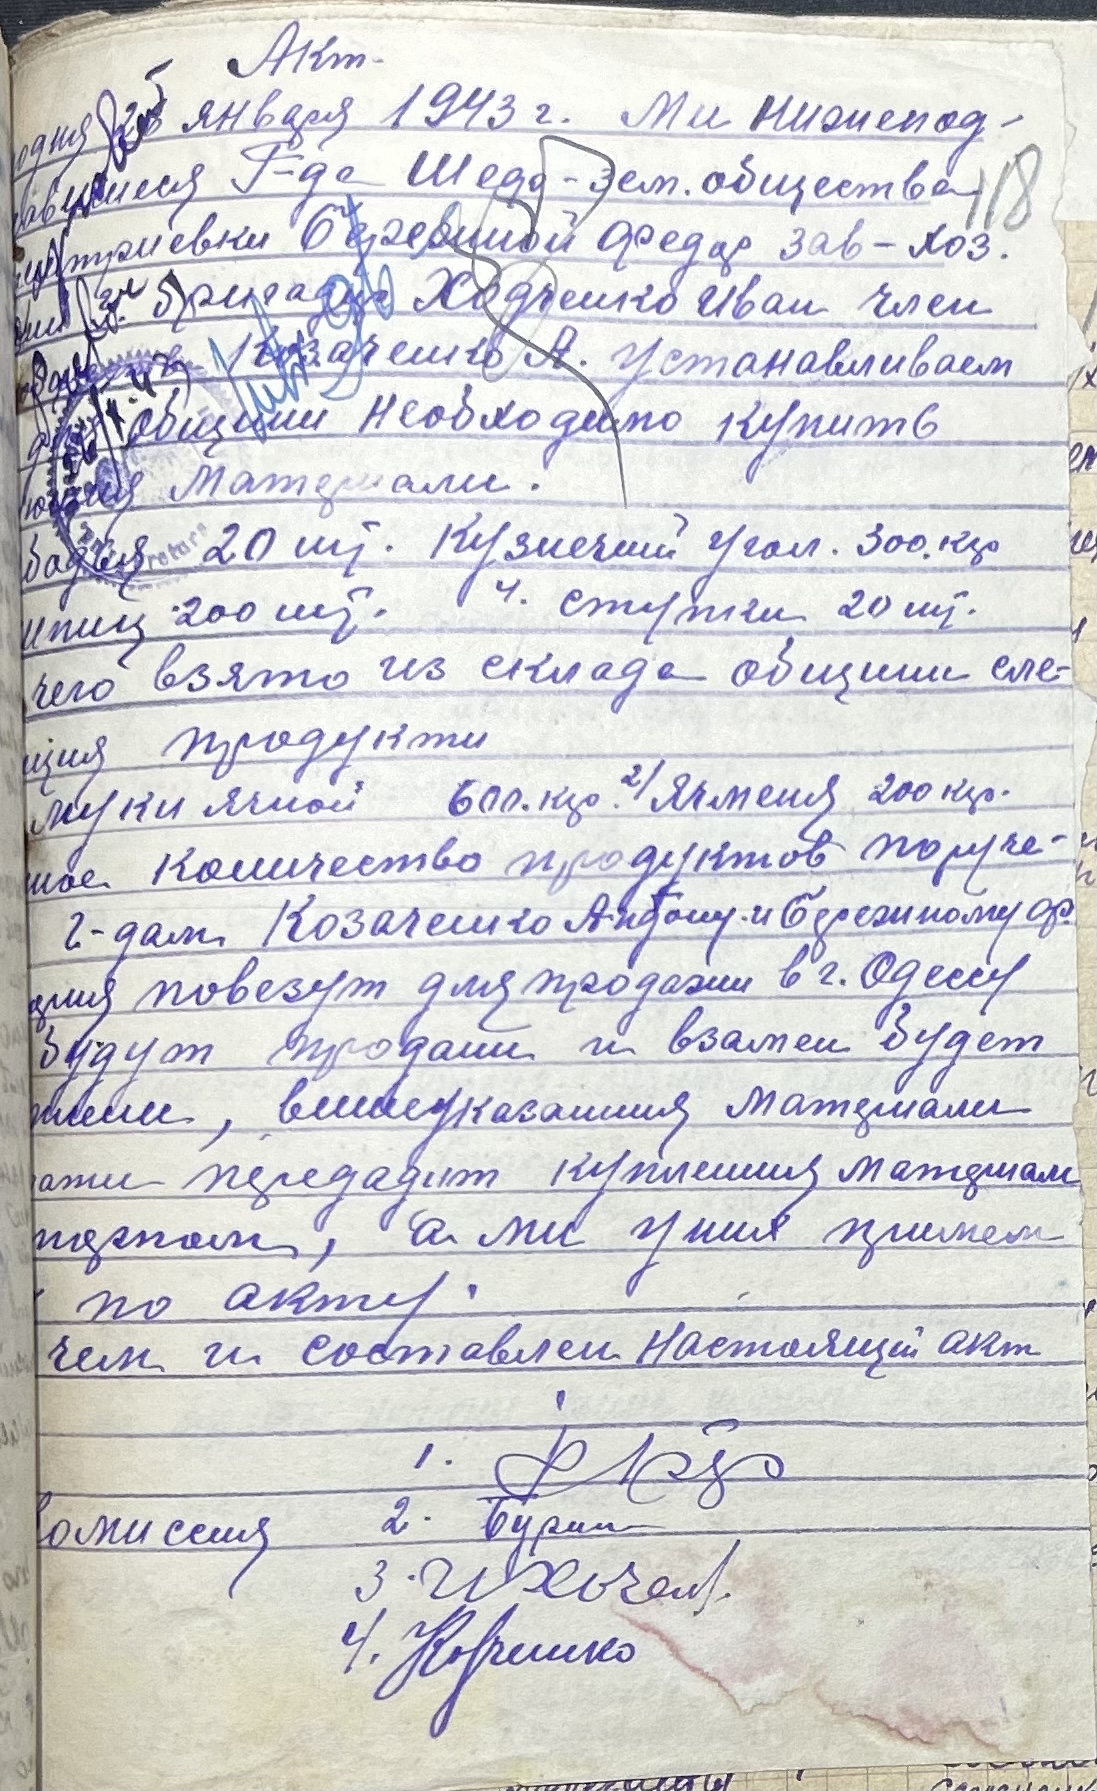 Акт.
января 1943 г. Ми нижепод-
Г-да зем. общества
118
Бережной Федор зав-хоз.
бригадир Ходченко Иван член
Козаченко А. устанавливаем
общини необходимо купить
материали.
20 шт. Кузнечний угол. 300.кгр
200 шт. 4. ступки 20 шт.
чего взято из склада общини сле-
щия продукти
муки ячной 600.кгр. 2/ Ячменя 200 кгр.
ное количество продуктов поруче-
г-дам Козаченко Антону и Бережному Ф.
повезут для продажи в г. Одессу
будут продани и взамен будет
, вишеуказанния материали
передадут купленния материали
, а ми у них примем
по акту.
чем и составлен настоящий акт
1.
омиссия 2.
3.
4.